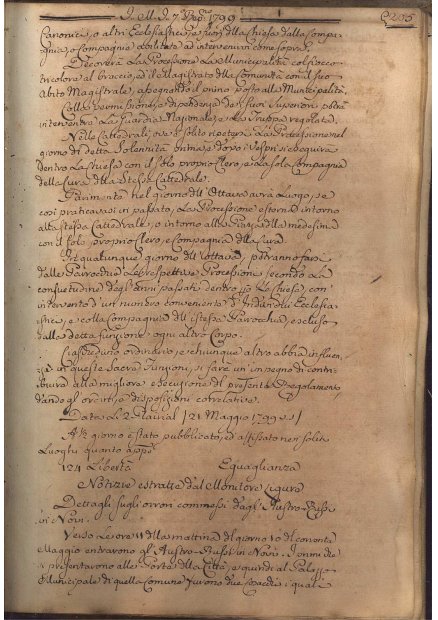 I. M. I. 7. Rep. 1799
Canonici, o altri Ecclesiastici, e fuori della Chiesa dalla Compa-
gnia, o Compagnie abilitate ad intervenirvi come sopra.
Decorerà la Processione la Municipalità col fiocco
tricolore al braccio, ed il Magistrato della Comunità con il suo
Abito Magistrale, assegnando il primo posto alla Municipalità.
Colla permissione, e dipendenza de' suoi Superiori potrà
intervenire la Guardia Nazionale, e la Truppa regolata.
Nelle Cattedrali, ove è solito ripetersi la Processione nel
giorno di detta Solennità prima, o dopo i Vespri si eseguirà
dentro la Chiesa con il solo proprio Clero, e la sola Compagnia
della Cura della Stessa Cattedrale.
Parimente nel giorno dell' Ottava avrà luogo, se
così praticavasi in passato, la Processione esterna intorno
alla stessa Cattedrale, o intorno alla Piazza della medesima
con il solo proprio Clero, e Compagnia della Cura.
In qualunque giorno dell' ottava, potranno farsi
dalle Parrocchie le respettive Processioni secondo la
consuetudine degl' anni passati dentro la Chiesa, con
intervento d' un numero conveniente d' Individui Ecclesia-
stici, e colla Compagnia dell' istessa Parrocchia, escluso
dalla detta funzione ogni altro Corpo.
Ciascheduno ordinario, e chiunque altro abbia influen-
za in queste Sacre Funzioni, si farà un impegno di contri-
buire alla migliore esecuzione del presente Regolamento
dando gl' ordini, e disposizioni correlative.
Data Lì 2. Flaireal | 21. Maggio 1799
giorno è stato pubblicato, ed affissato nei soliti
Luoghi quanto appè
124 Libertà Equaglianza
Notizie estratte dal Monitore Ligure
Dettagli sugli orrori commessi dagl' Austro-Russi
in Novi.
Verso le ore 11 della mattina del giorno 10 del corrente
Maggio entrarono gl' Austro-Russi in Novi. I primi che
si presentarono alle Porte della Città, e quindi al Palazzo
Municipale di quella Comune furono due Cosacchi, i quali